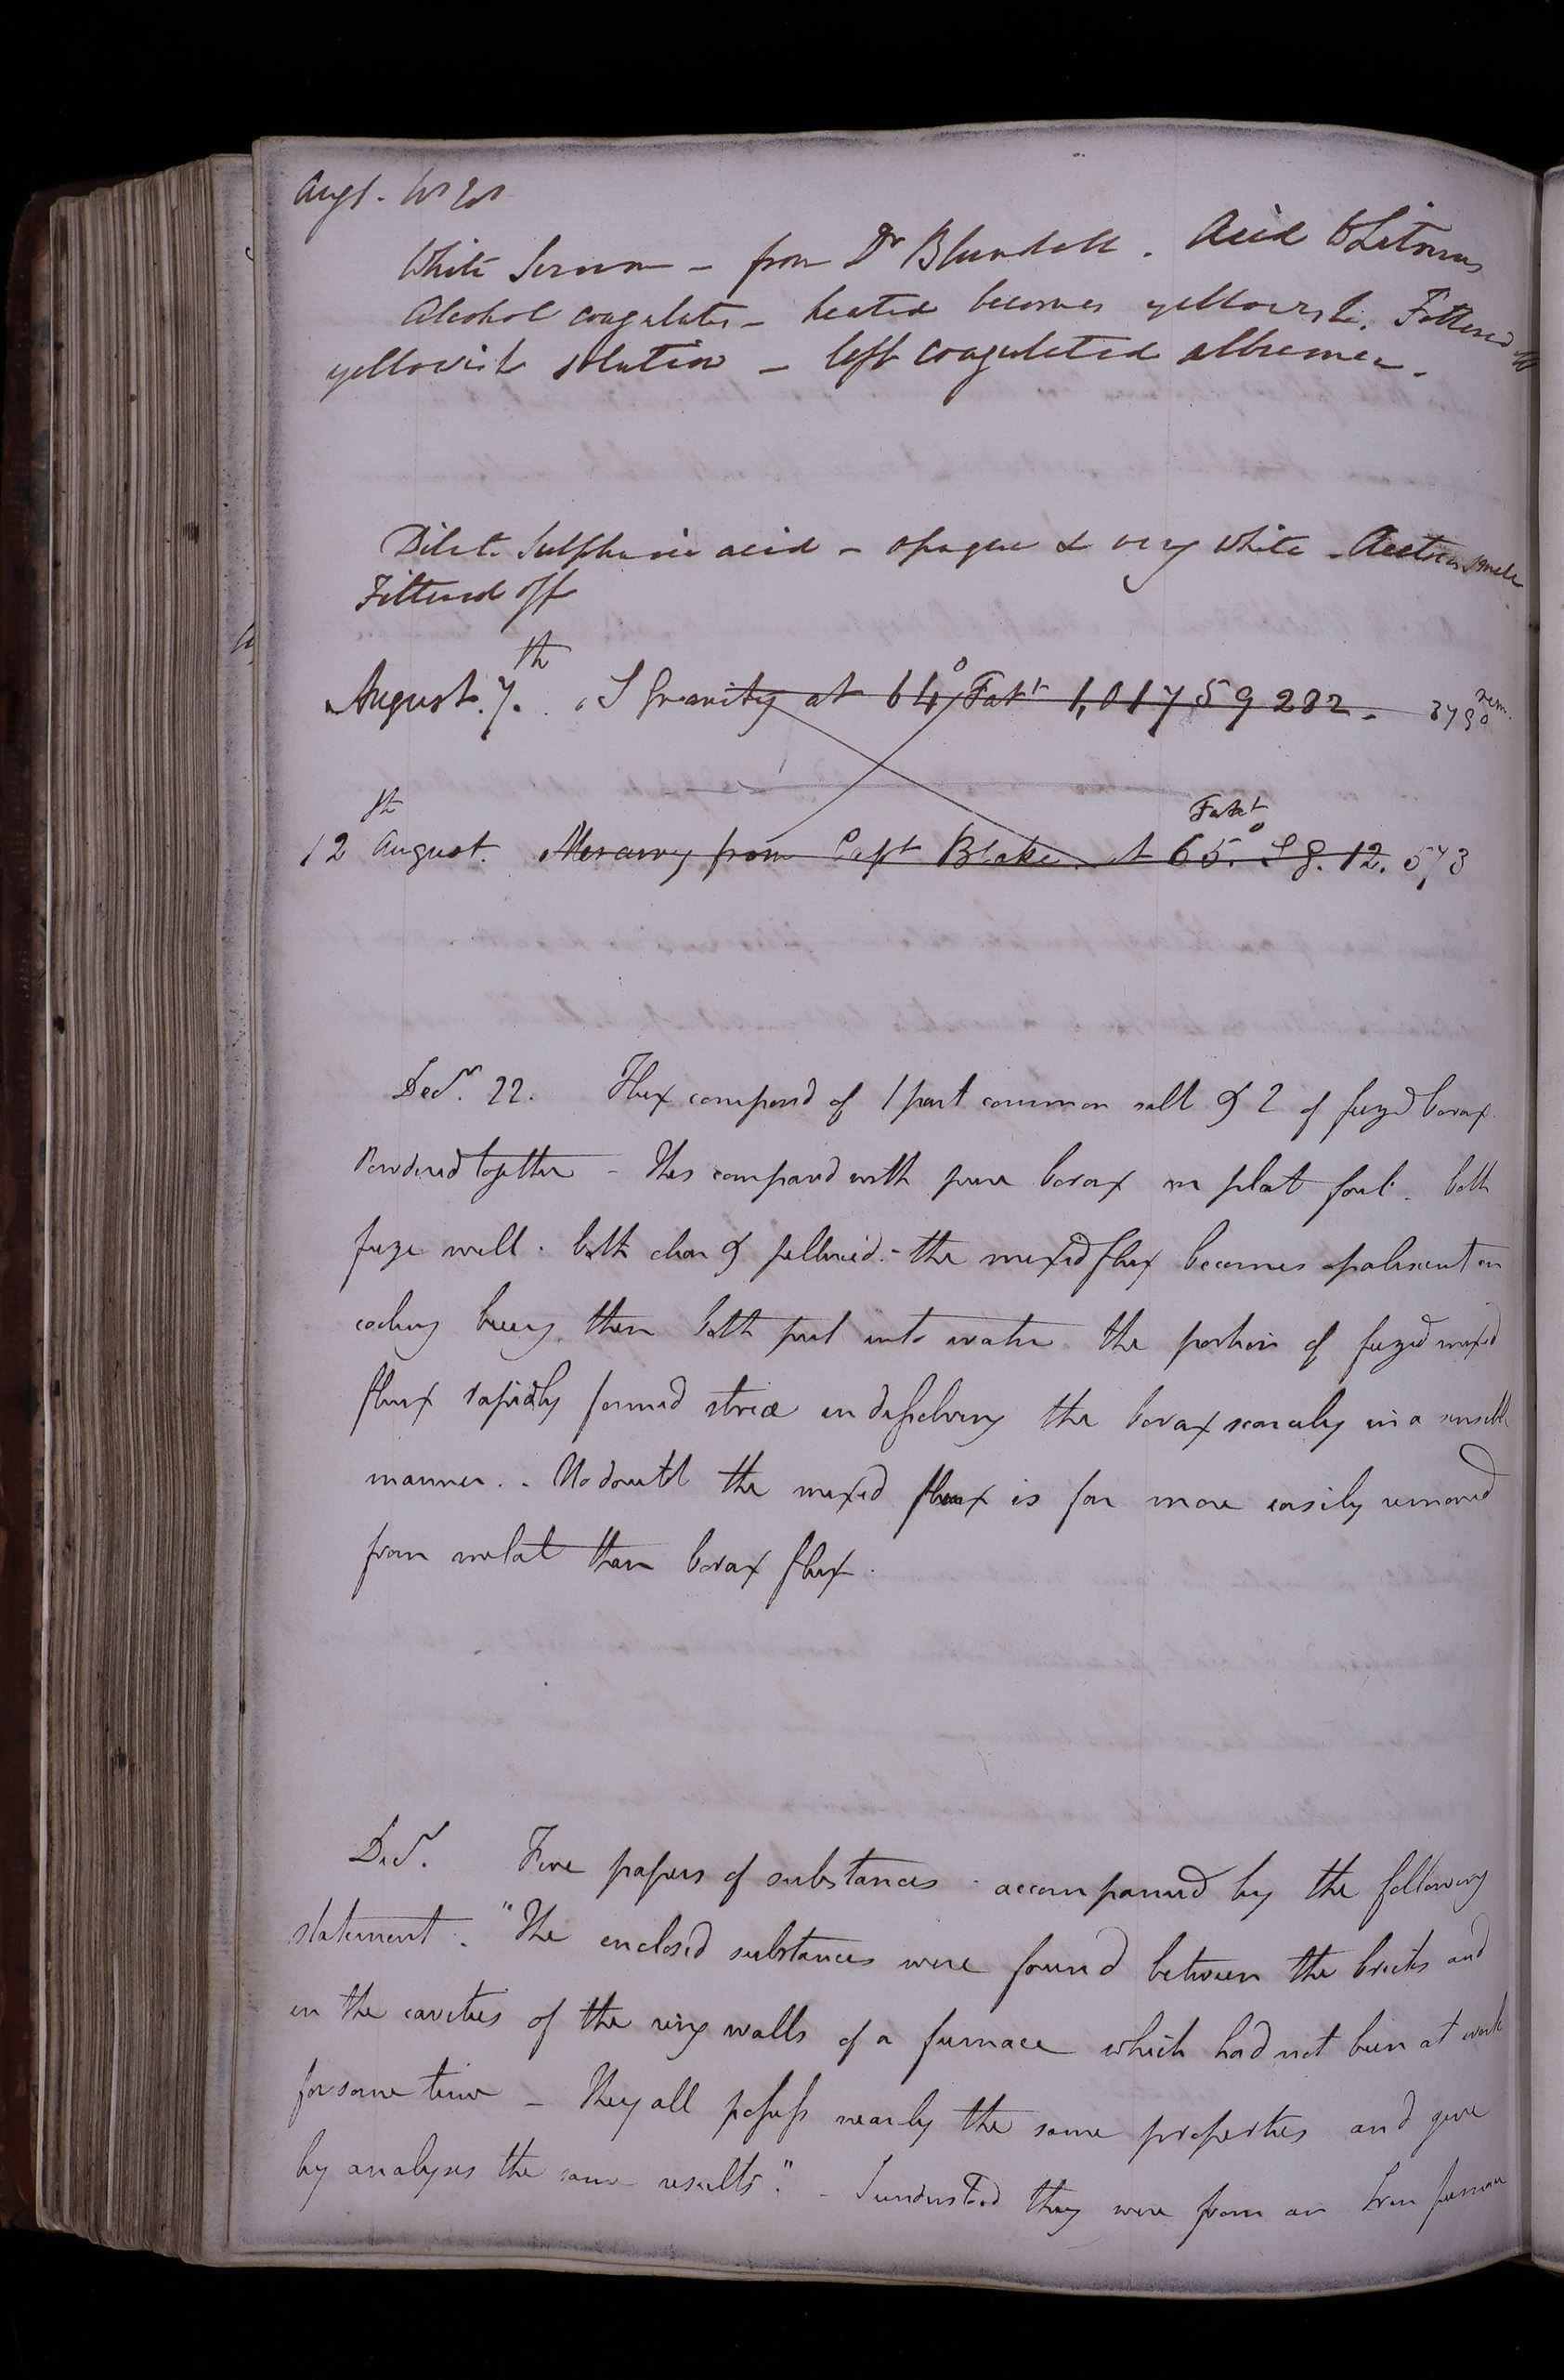 Augt.
White Serum - from Dr Blundell. Acid to Litmus
Alcohol coagulates - heated becomes yellowish. Filtered off
yellowish solution - left coagulated albumen -
Dilute Sulphuric acid - opaque & very white - Acetic smell
Filtered off
August. 7th. S Gravity at 64° Faht 1,01759282 - rem.
12th August. Mercury from Capt Blake. At 65.° Faht S g. 12. 573
Decr. 22. Flux composed of 1 part common salt & 2 of fuzed borax
Powdered together - This compared with pure borax in plat foil. both
fuze well. both clear & pellucid. - the mixed flux becomes opalescent on
cooling being then both put into water the portion of fuzed mixed
flux rapidly formed striæ in dissolving the borax scarcely in a sensible
manner. - No doubt the mixed flux is far more easily removed
from metal than borax flux.
Decr. Five papers of substances - accompanied by the following
statement. "The enclosed substances were found between the bricks and
in the cavities of the ring walls of a furnace which had not been at work
for some time - They all possess nearly the same properties and give
by analysis the same results". - I understood they were from an Iron furnace